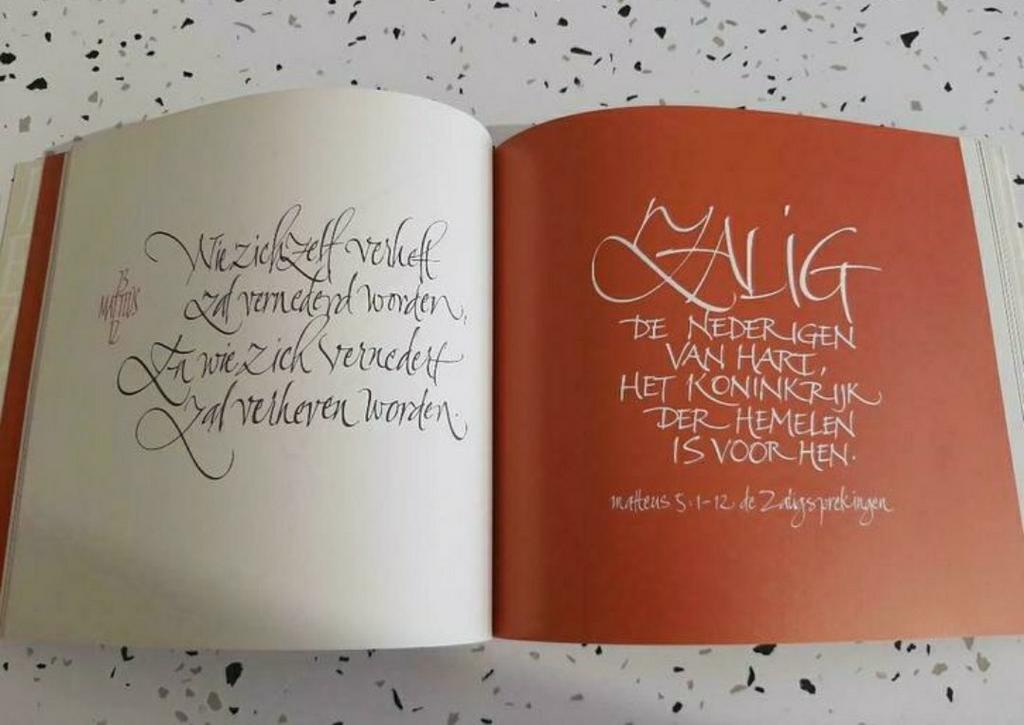 Wie zichzelf verheft
zal vernederd worden,
En wie zich vernedert
zal verheven worden.
23
MATTEUS
12
ZALIG
DE NEDERIGEN
VAN HART,
HET KONINKRIJK
DER HEMELEN
IS VOOR HEN.
matteus 5:1-12 de Zaligsprekingen